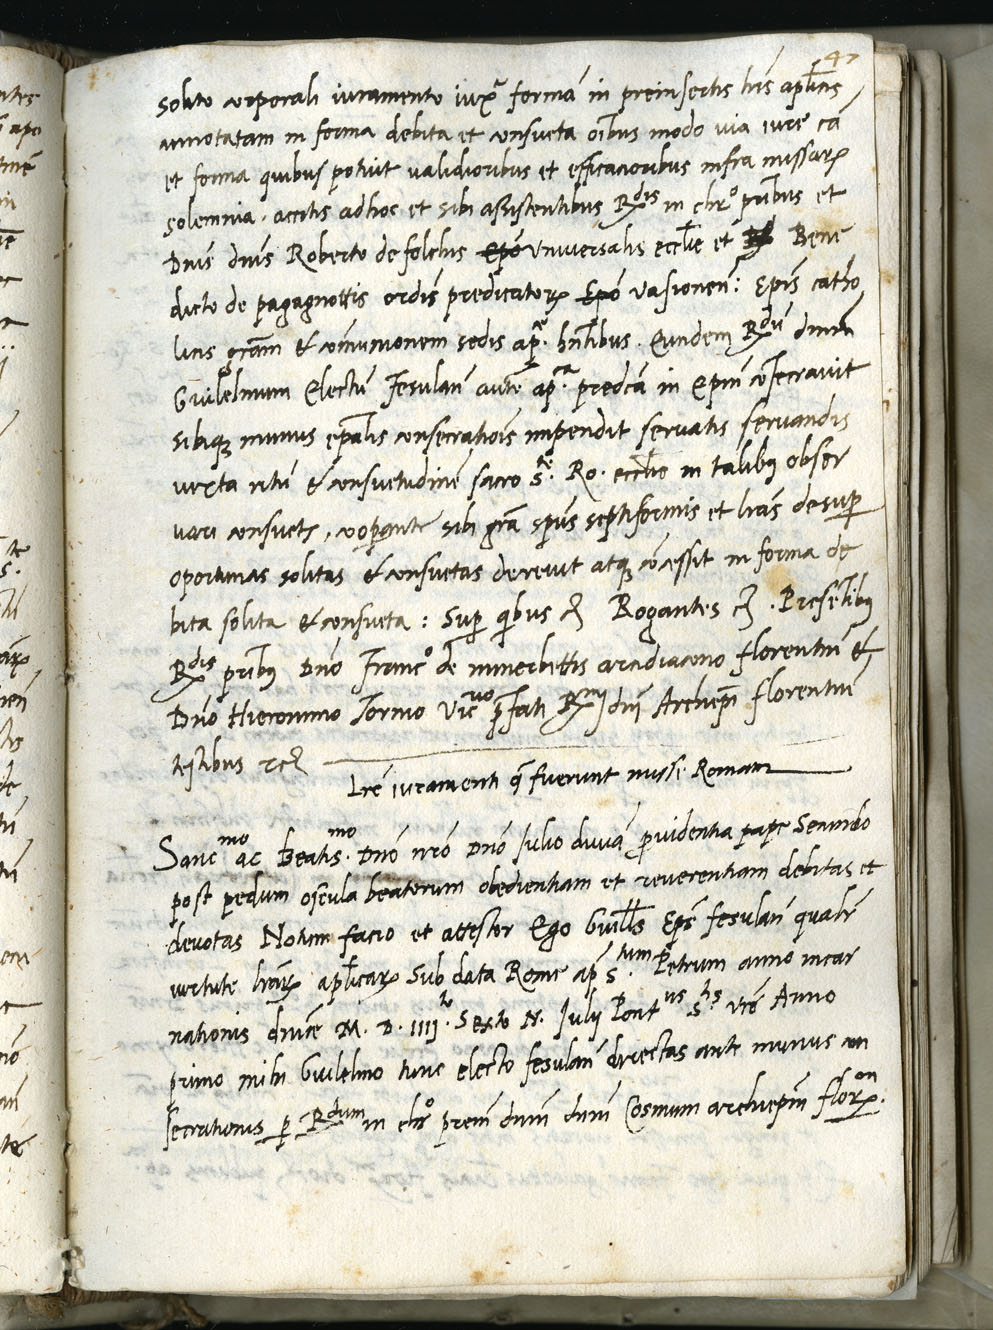 47
solito corporali iuramento iuxª formā in preinsertis lris aplicis
annotatam in forma debita et consueta oibus modo via iure cā
et forma quibus potuit validioribus et efficacioribus infra missarꝫ
solemnia. accitis adhoc et sibi assistentibus Rdis in chro pribus et
Dnis dnis Roberto de folchis Epō Universalis ecclie et Bene
dicto de pagagnottis ordis predicatorꝫ Epō vasionen: Epis catho
licis gram & comunionem sedis ap.ce hntibus. Eundem Rdu dnum
Guilelmum Electū Fesulan aucte ap.ca predcā in Epm cosecravit
sibiqꝫ munus epalis consecratiois impendit servatis servandis
iuxta ritū & consuetudinē sacro s.te Ro. ecclie in talibꝫ obser
vari consuetꝫ, cooperante sibi gra spus septiformis et lras desuper
oportunas solitas & consuetas decrevit atqꝫ cōcessit in forma de
bita solita & consueta: Super qibus cꝫ Rogantes cꝫ. Presetibꝫ
Rdis pribꝫ Dno Francº de minerbettis arcidiacono florentin &
Dno Hieronimo Tornio Vicrio pfati Rmi dni Archiepi florentin
testibus rcꝫ
Lre iuramenti q fuerunt misse Romam
Sancmo ac Beatismo. Dno nro Dno Julio divā pvidentia pape Secundo
post pedum oscula beatorum obedientiam et reverentiam debitas et
devotas Notum facio et attestor Ego Guills Eps fesulan qualr
virtute lrarꝫ aplicarꝫ Sub data Rome ap s.tum Petrum anno incar
nationis dnice M. D. IIII. Sexto N. Julii Pontus S.tis vre Anno
primo mihi Guilelmo tunc electo fesulan directas ante munus con
secrationis p Rdum in chrº prem dnm dnm Cosmum archiepm florꝫon.